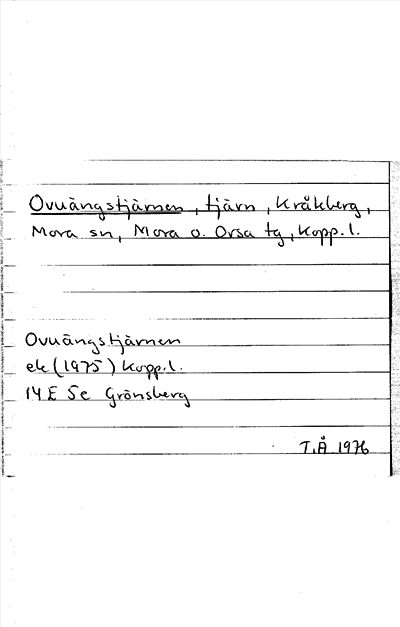 Ovuängstjärnen, tjärn, Kråkberg,
Mora sn, Mora o. Orsa tg, Kopp.l.
Ovuängstjärnen
ek (1975) Kopp.l.
14E 5c Grönsberg
T.Å 1976